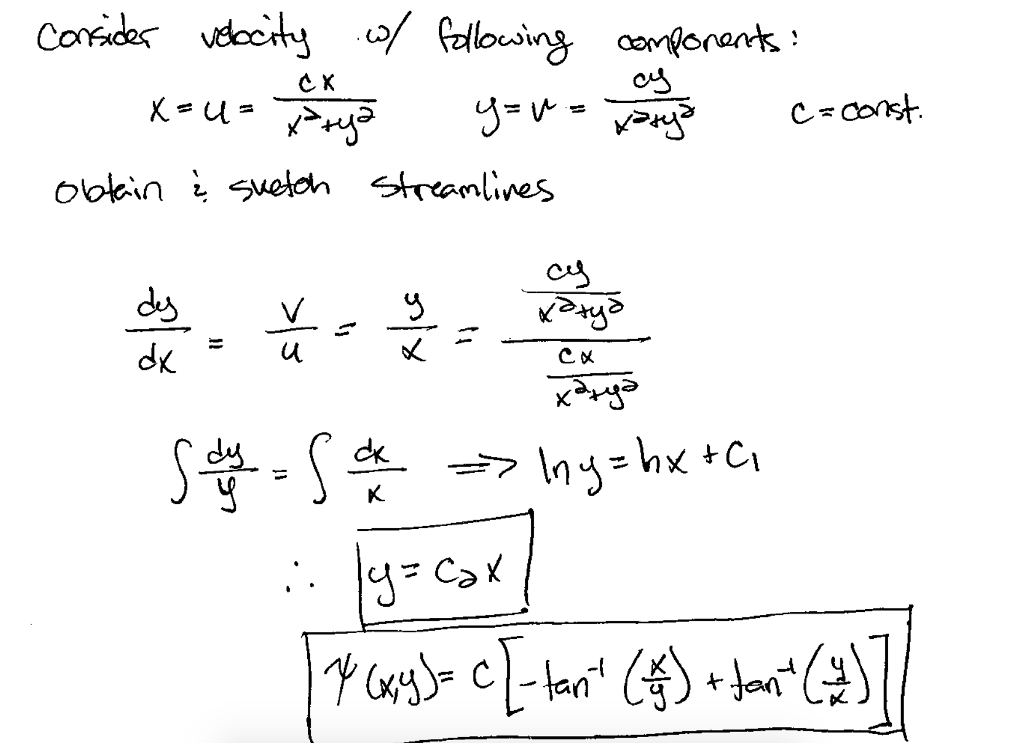 Consider velocity w/ following components:
x = u = cx/(x²+y²)   y = v = cy/(x²+y²)   c = const.
obtain & sketch streamlines
dy/dx = v/u = y/x = (cy/(x²+y²))/(cx/(x²+y²))
∫ dy/y = ∫ dx/x ⟹ ln y = ln x + C₁
∴ y = C₂x
ψ(x,y) = c[-tan⁻¹(x/y) + tan⁻¹(y/x)]